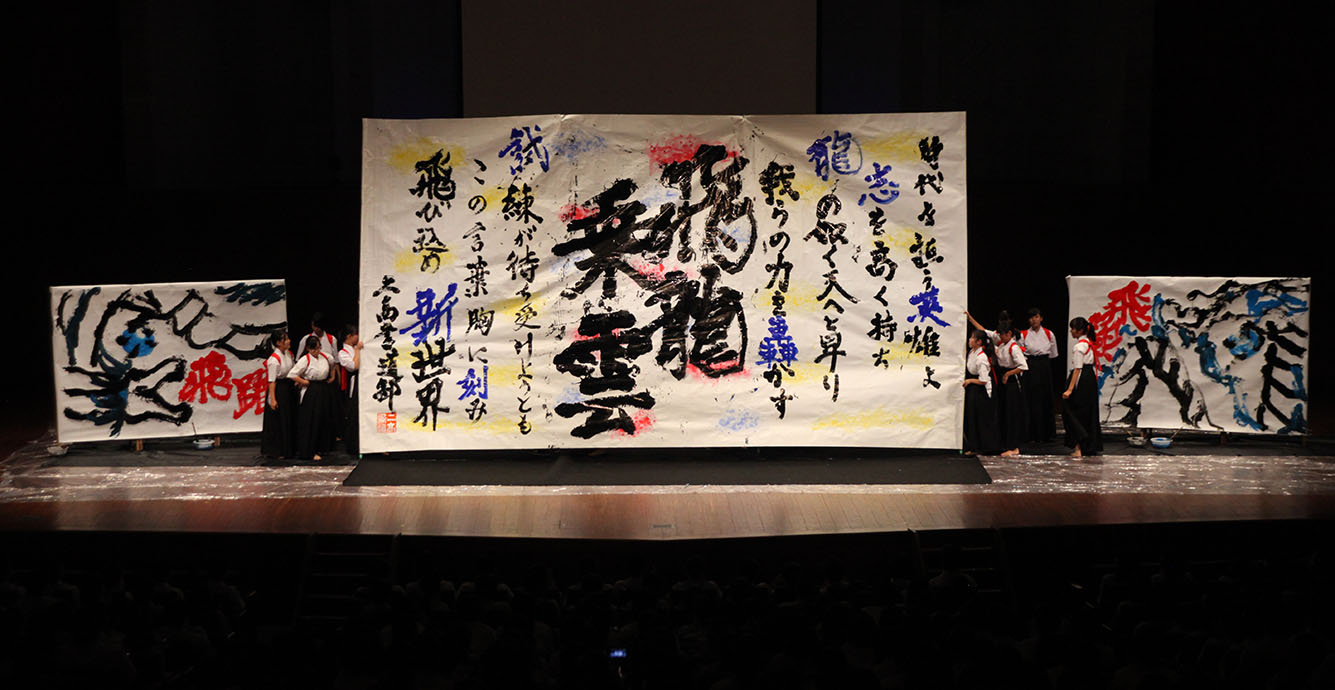 時代を謳う英雄よ
志を高く持ち
龍の如く天へと昇り
我らの力を轟かす
飛龍
乗雲
試練が待ち受けようとも
この言葉胸に刻み
飛び込め新世界
大高書道部
飛躍
飛